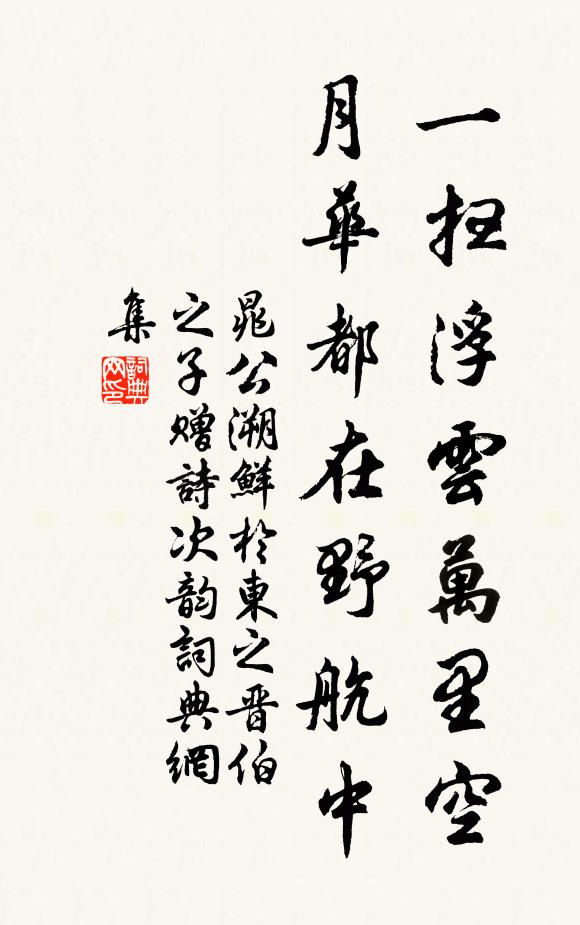 一掃浮雲萬里空
月華都在野航中
晁公溯鮮於東之晋伯
之子贈詩次韵詞典網
集
詞典網印